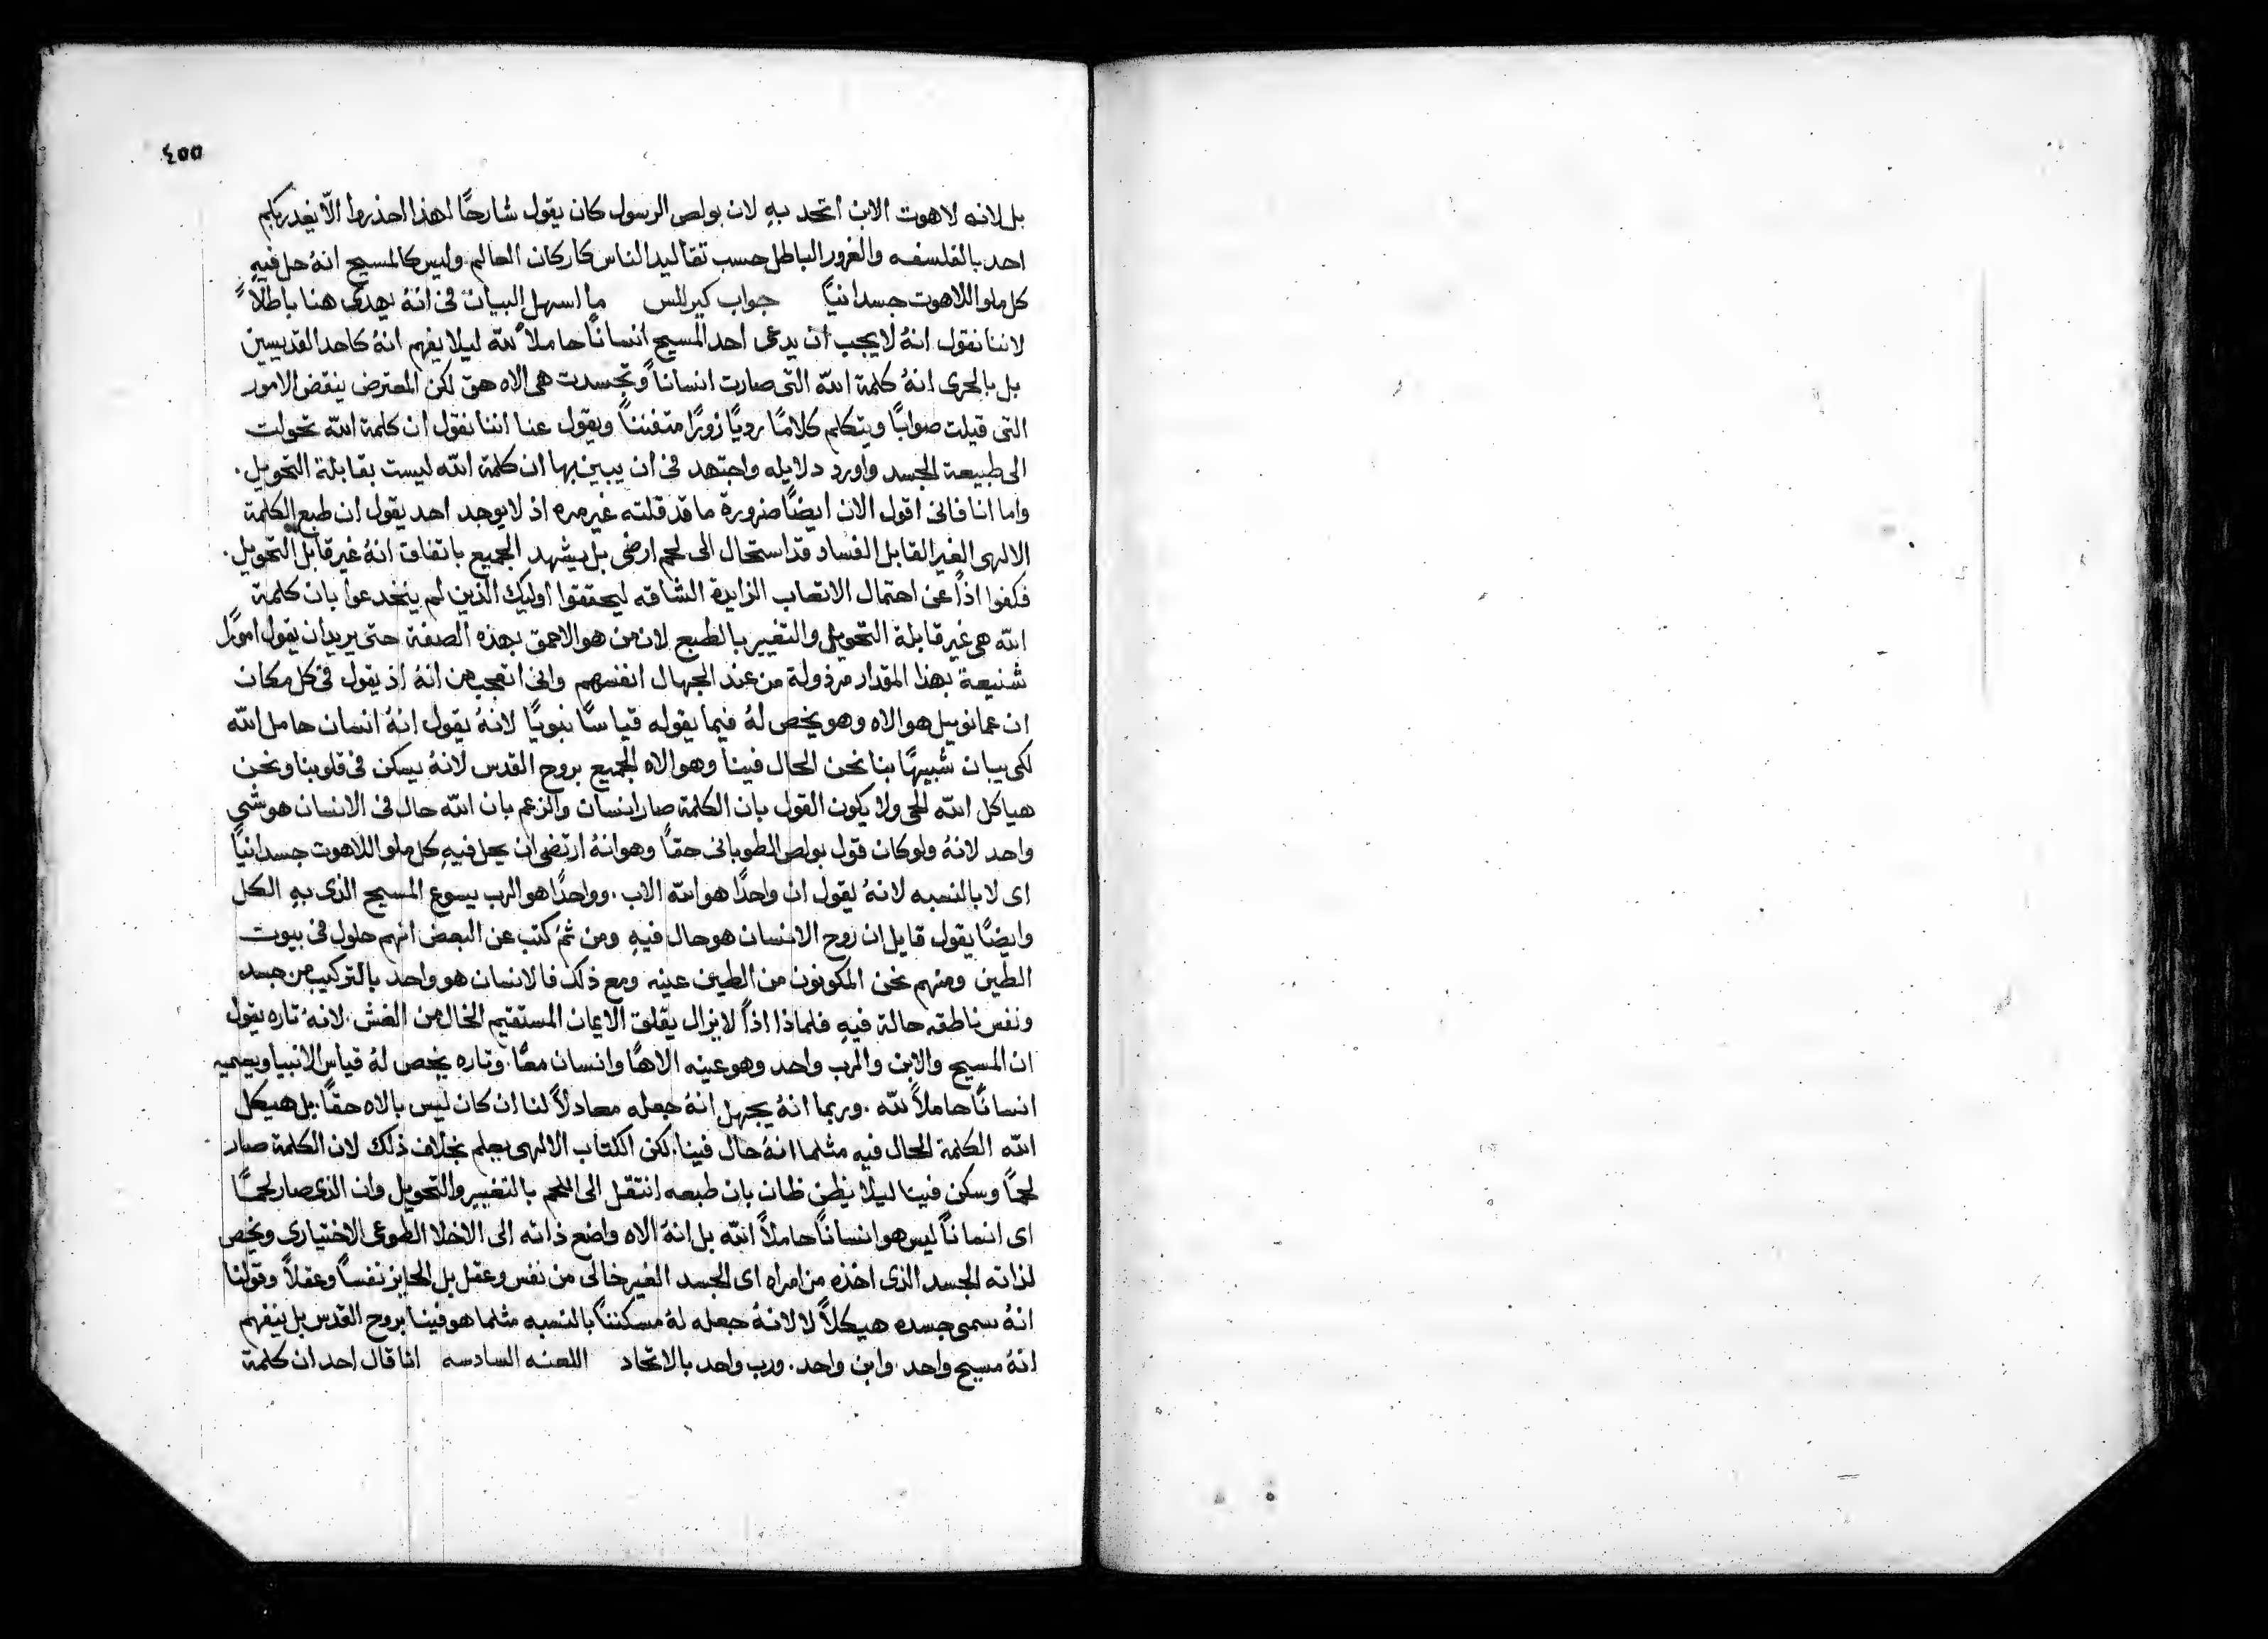 ٤٥٥
بل لانه لاهوت الابن اتحد بهِ لان بولص الرسول كان يقول شارحًا لهذا احذروا الّا يغدر بكم
احد بالفلسفه والغرور الباطل حسب تقاليد الناس كاركان العالم وليس كالمسيح انهُ حل فيهِ
كل ملو اللاهوت جسدانيًا جواب كيرللس ما اسهل البيان في انهُ يهدي هنا باطلاً
لاننا نقول انهُ لا يجب ان يدعى احد المسيح انسانًا حاملاً لله ليلا يفهم انهُ كاحد القديسين
بل بالحرى انهُ كلمة الله التى صارت انسانًا وتجسدت هى الاه حق لكن المعترض ينقض الامور
التى قيلت صوابًا ويتكلم كلامًا رديًا زورًا متفننًا ويقول عنا اننا نقول ان كلمة الله تحولت
الى طبيعة الجسد واورد دلايله واجتهد فى ان يبين بها ان كلمة الله ليست بقابلة التحويل.
واما انا فانى اقول الان ايضًا ضرورة ما قد قلته غير مره اذ لا يوجد احد يقول ان طبع الكلمة
الالهى الغير القابل الفساد قد استحال الى لحم ارضى بل يشهد الجميع باتفاق انهُ غير قابل التحويل.
فكفوا اذًا عن احتمال الاتعاب الزايدة الشاقه ليحتقوا اوليك الذين لم ينخدعوا بان كلمة
الله هى غير قابلة التحويل والتغيير بالطبع لان من هو الاحمق بهذه الصفة حتى يريد ان يقول امورًا
شنيعة بهذا المقدار مرذولة من عند الجهال انفسهم وانى اتعجب من انهُ اذ يقول فى كل مكان
ان عمانوييل هو الاه وهو يخص لهُ فيما يقوله قياسًا نبويًا لانهُ يقول انهُ انسان حامل الله
لكى يبان شبيهًا بنا نحن الحال فينا وهو الاه الجميع بروح القدس لانهُ يسكن فى قلوبنا ونحن
هياكل الله الحى ولا يكون القول بان الكلمة صار انسان والزعم بان الله حال فى الانسان هو شى
واحد لانهُ ولو كان قول بولص الطوبانى حقًا وهو انهُ ارتضى ان يحل فيهِ كل ملو اللاهوت جسدانيًا
اى لا بالنسبه لانهُ يقول ان واحدًا هو الله الاب. وواحدًا هو الرب يسوع المسيح الذى بهِ الكل
وايضًا يقول قايل ان روح الانسان هو حال فيهِ ومن ثمَ كتب عن البعض انهم حلول فى بيوت
الطين ومنهم نحن المكونون من الطين عينه ومع ذلك فالانسان هو واحد بالتركيب من جسد
ونفس ناطقه حالة فيهِ فلماذا اذًا لا يزال يقلق الايمان المستقيم الخال من الغش. لانهُ تاره يقول
ان المسيح والابن والرب واحد وهو عينه الاهًا وانسان معًا. وتاره يخص لهُ قياس الانبيا ويسميه
انسانًا حاملاً لله. وربما انهُ يجهل انهُ جعله معادلاً لنا ان كان ليس بالاه حقًا. بل هيكل
الله الكلمة الحال فيه مثلما انهُ حال فينا. لكن الكتاب الالهى يعلم بخلاف ذلك لان الكلمة صار
لحمًا وسكن فينا ليلا يظن ظان بان طبعه انتقل الى اللحم بالتغيير والتحويل وان الذى صار لحمًا
اى انسانًا ليس هو انسانًا حاملاً الله بل انهُ الاه واضع ذاته الى الاخلا الطوعى الاختيارى ويخص
لذاته الجسد الذى اخذه من امراه اى الجسد الغير خالى من نفس وعقل بل الحايز نفسًا وعقلاً وقولنا
انهُ سمى جسده هيكلاً لا لانهُ جعله لهُ مسكننًا بالنسبه مثلما هو فينا بروح القدس بل ينفهم
انهُ مسيح واحد. وابن واحد. ورب واحد بالاتحاد اللعنه السادسه اذا قال احد ان كلمة